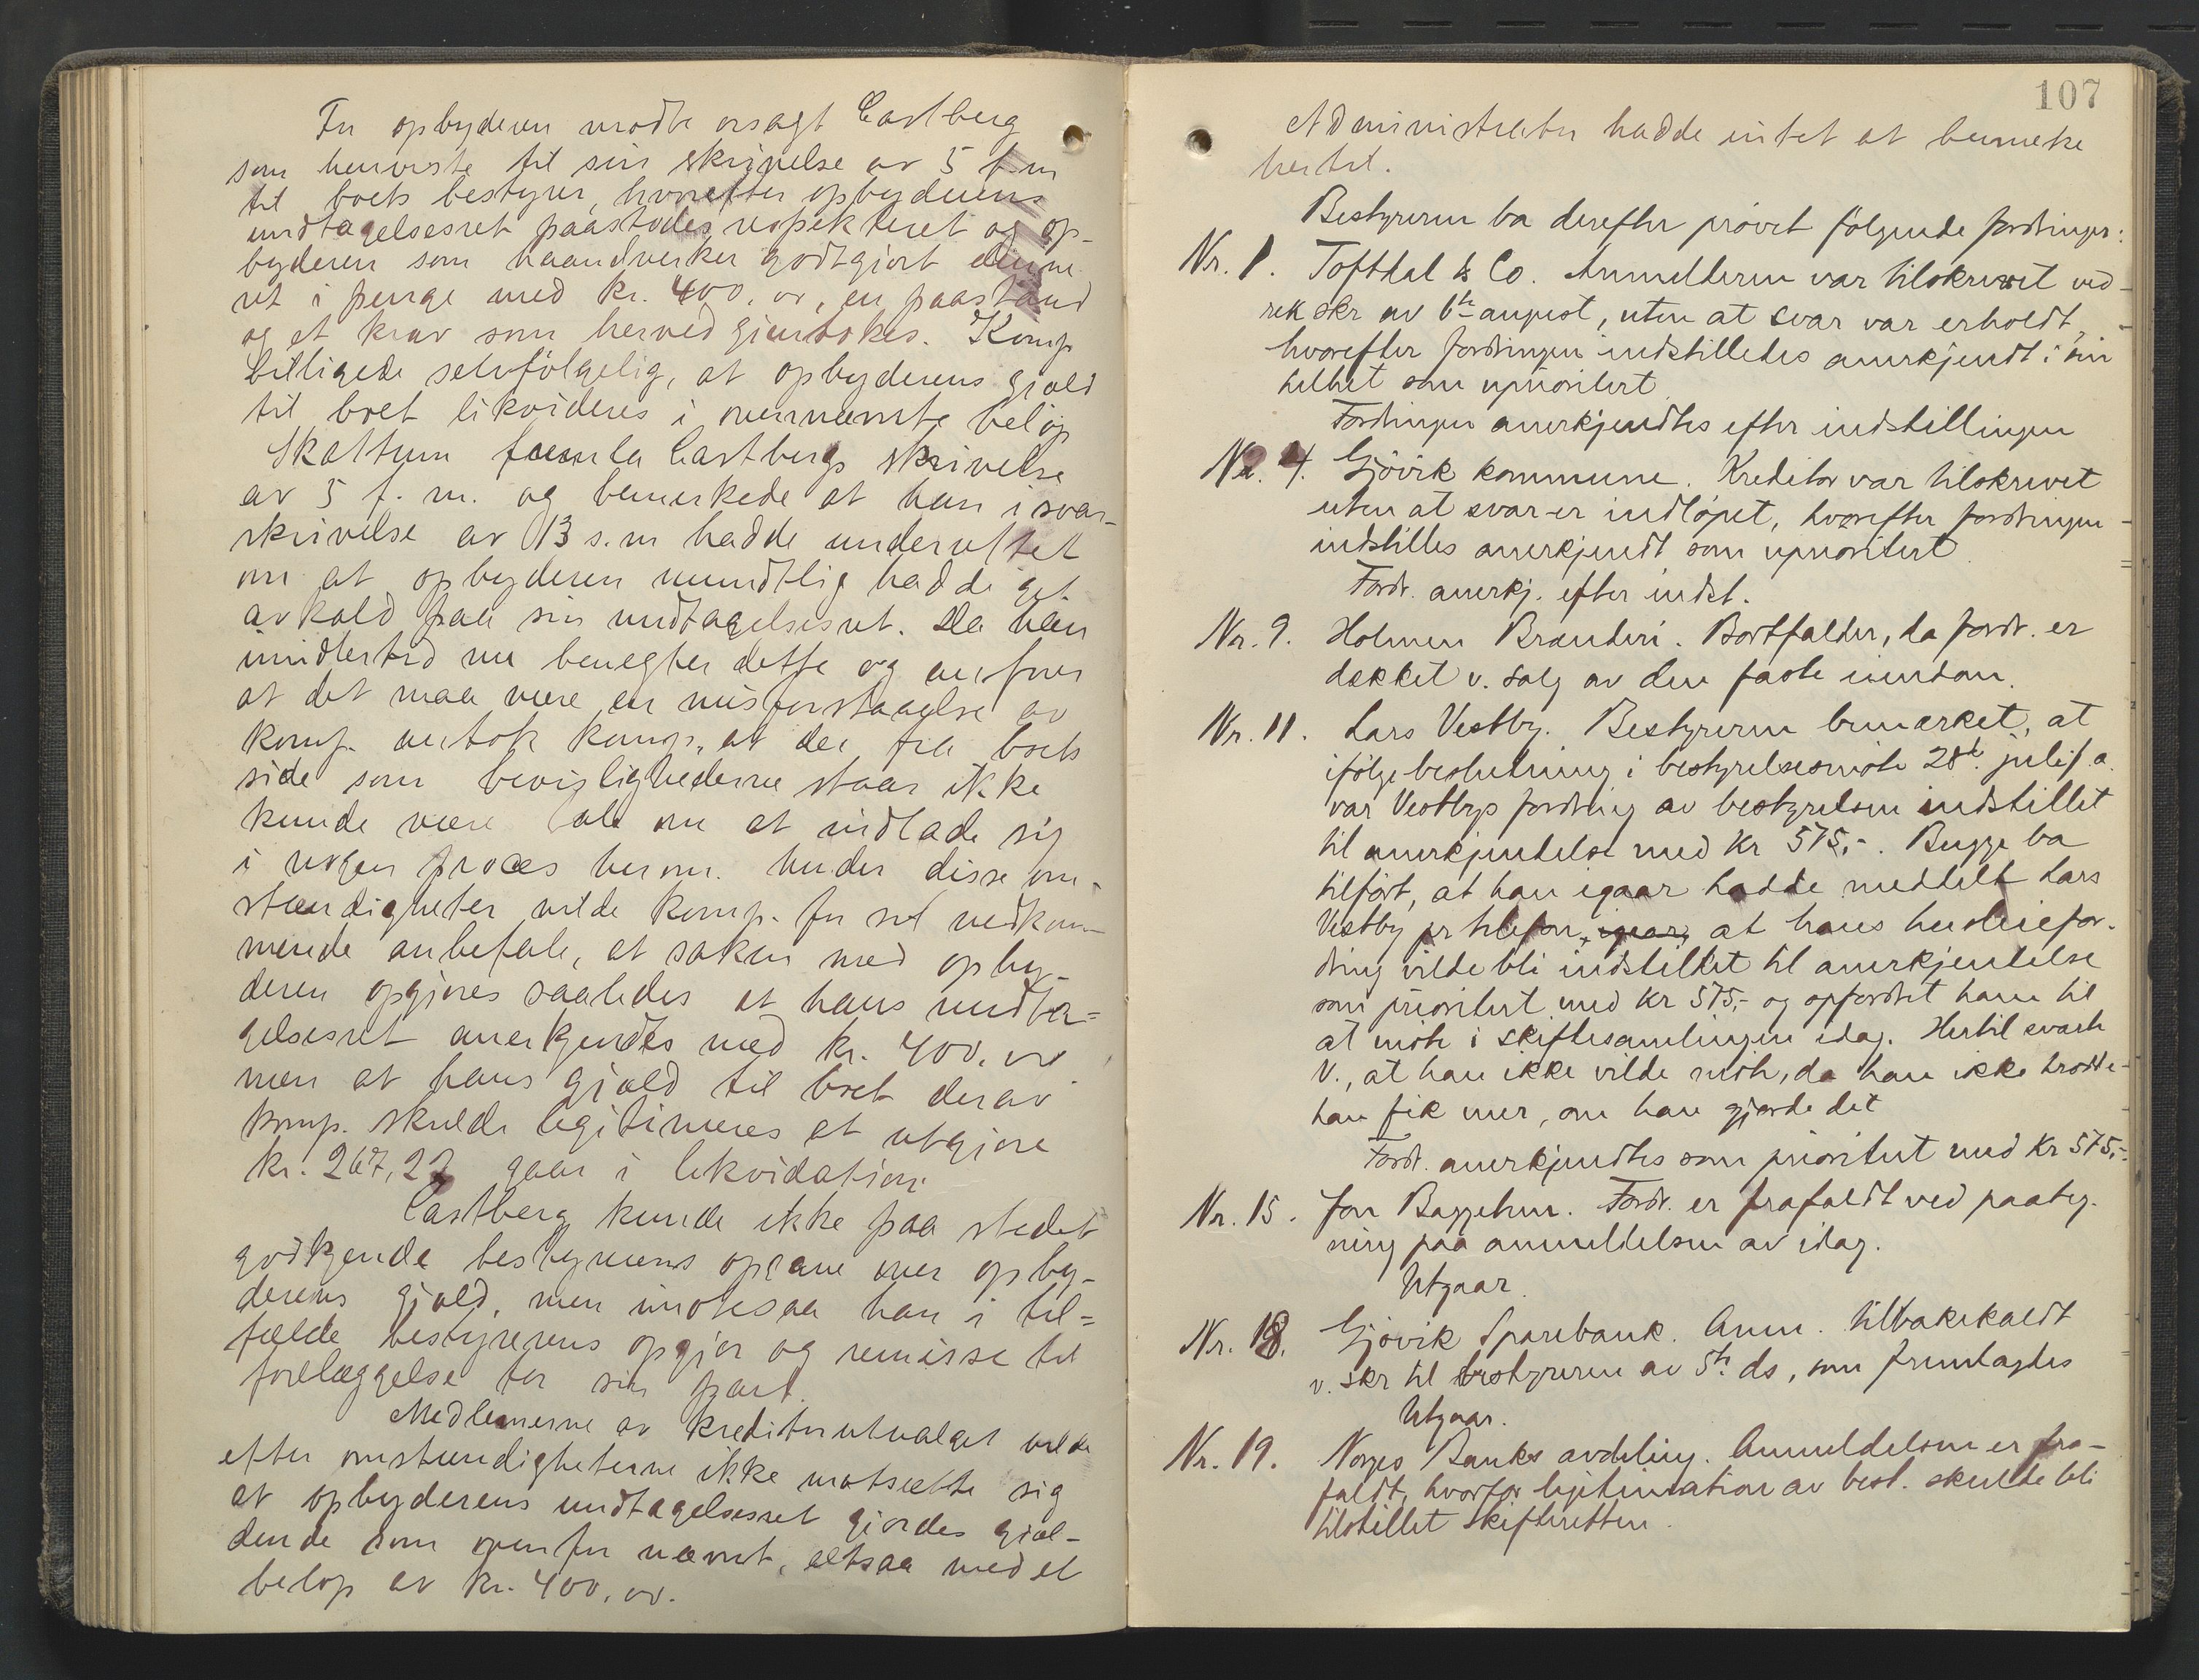 For opbyderen mødte orsagf Castberg
som henviste til sin skrivelse av 5 f.m
til boets bestyrer, hvorefter opbyderens
undtagelsesret paastodes respekteret og op-
byderen som haandverker godtgjort denne
ret i penge med kr. 400, oo, en paastand
og et krav som herved gjentokes. Komp
billigede selvfølgelig, at opbyderens gjæld
til boet likvideres i overnævnte beløp
Skattum Castbergs skrivelse
av 5 f. m. og bemerkede at han i svar-
skrivelse av 13 s.m hadde underrettet
om at opbyderen mundtlig hadde git
avkald paa sin undtagelsesret. Da han
imidlertid nu benegter dette og anfører
at det maa være en misforstaaelse av
komp. antok komp. at der fra boets
side som bevislighederne staar ikke
kunde være tale om at indlade sig
i nogen proces herom. Under disse om-
stændigheter vilde komp. for sit vedkom-
mende anbefale, at saken med opby-
deren opgjøres saaledes at hans undta=
gelsesret anerkjendtes med kr. 400, oo
men at hans gjæld til boet derav
komp. skulde legitimeres at utgjøre
kr. 267,22 gaar i likvidation.
Castberg kunde ikke paa stedet
godkjende bestyrerens opgave over opby-
derens gjæld, men imøtesaa han i til=
fælde bestyrerens opgjør og remisse til
forelæggelse for sin part.
Medlemerne av kreditorutvalget vilde
efter omstændigheterne ikke motsætte sig
at opbyderens undtagelsesret gjordes gjæl-
dende som ovenfor nævnt, altsaa med et
beløp av kr. 400, oo.
107
Administrator hadde intet at bemerke
hertil.
Bestyreren ba derefter prøvet følgende fordringer:
Nr. 1. Tofthal & Co. Anmelderen var tilskrevet ved
rek skr av 6te august, uten at svar var erholdt,
hvorefter fordringen indstilledes anerkjendt i sin
helhet som uprioritert
Fordringen anerkjendtes efter indstillingen
Nr. 4. Gjøvik kommune. Kreditor var tilskrevet
uten at svar er indløpet, hvorefter fordringen
indstilles anerkjendt som uprioritert
Fordr. anerkj. efter indst.
Nr. 9. Holmen Brænderi. Bortfalder, da fordr. er
dækket v. salg av den faste eiendom.
Nr. 11. Lars Vestby. Bestyreren bemærket, at
ifølge beslutning i bestyrelsesmøte 28de. juli f.a.
var Vestbys fordring av bestyrelsen indstillet
til anerkjendelse med Kr 575,-. Bugge ba
tilført, at han igaar hadde meddelt Lars
Vestby pr telefon, igaar, at hans husleiefor-
dring vilde bli indstillet til anerkjendelse
som prioritert med kr 575,- og opfordret ham til
at møte i skiftesamlingen idag. Hertil svarte
V., at han ikke vilde møte, da han ikke trodde
han fik mer, om han gjorde det
Fordr. anerkjendtes som prioritert med Kr 575,-
Nr. 15. Jon Baggehun. Fordr. er frafaldt ved paateg-
ning paa anmeldelsen av idag.
Utgaar.
Nr. 18. Gjøvik Sparebank. Anm. tilbakekaldt
v. skr til bestyreren av 5te ds, som fremlagdes
Utgaar.
Nr. 19. Norges Banks avdeling. Anmeldelsen er fra-
faldt, hvorfor legitimation av best. skulde bli
tilstillet skifteretten.